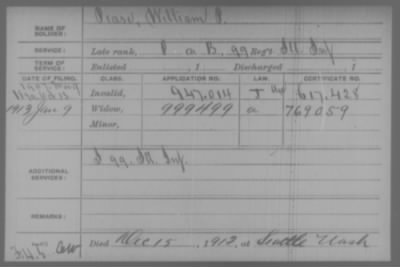 NAME OF SOLDIER: Pease, William P.
SERVICE: Late rank, P Co B, 99 Reg't Ill Inf
TERM OF SERVICE: Enlisted , 1 Discharged , 1
DATE OF FILING. CLASS. APPLICATION NO. LAW. CERTIFICATE NO.
Invalid, 947.014 J 617.428
1913 Jan 9 Widow, 999499 a 769059
Minor,
ADDITIONAL SERVICES: I 99 Ill. Inf.
REMARKS:
Died Dec 15, 1912, at Seattle Wash